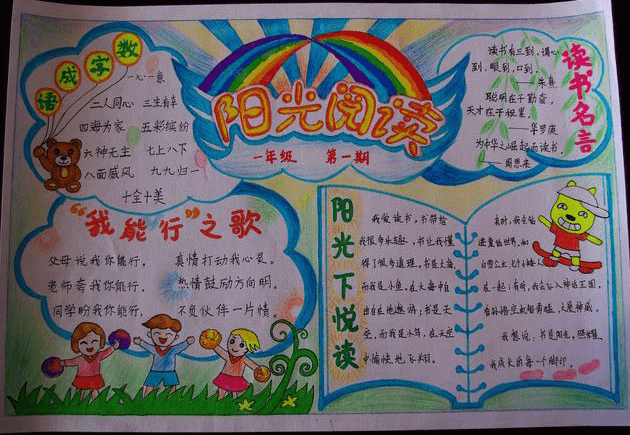 数字成语
一心一意
二人同心 三生有幸
四海为家 五彩缤纷
六神无主 七上八下
八面威风 九九归一
十全十美
阳光阅读
一年级 第一期
读书名言
读书有三到,谓心
到,眼到,口到。
——朱熹
聪明在于勤奋,
天才在于积累。
——华罗庚
为中华之崛起而读书。
——周恩来
“我能行”之歌
父母说我你能行,真情打动我心灵。
老师夸我你能行,热情鼓励方向明。
同学盼我你能行,不负伙伴一片情。
阳光下悦读
我爱读书,书带给
我很多乐趣,书让我懂
得了很多道理。书是大海,
而我是小鱼,在大海中自
由自在地遨游,书是天
空,而我是小鸟,在天空
中愉快地飞翔。
有时,我会
进童话世界,和
白雪公主、七个小矮人
在一起;有时,我会入神话王国,
看孙悟空,大展神威。
我想说:书是阳光,照耀
我成长的每一个脚印。